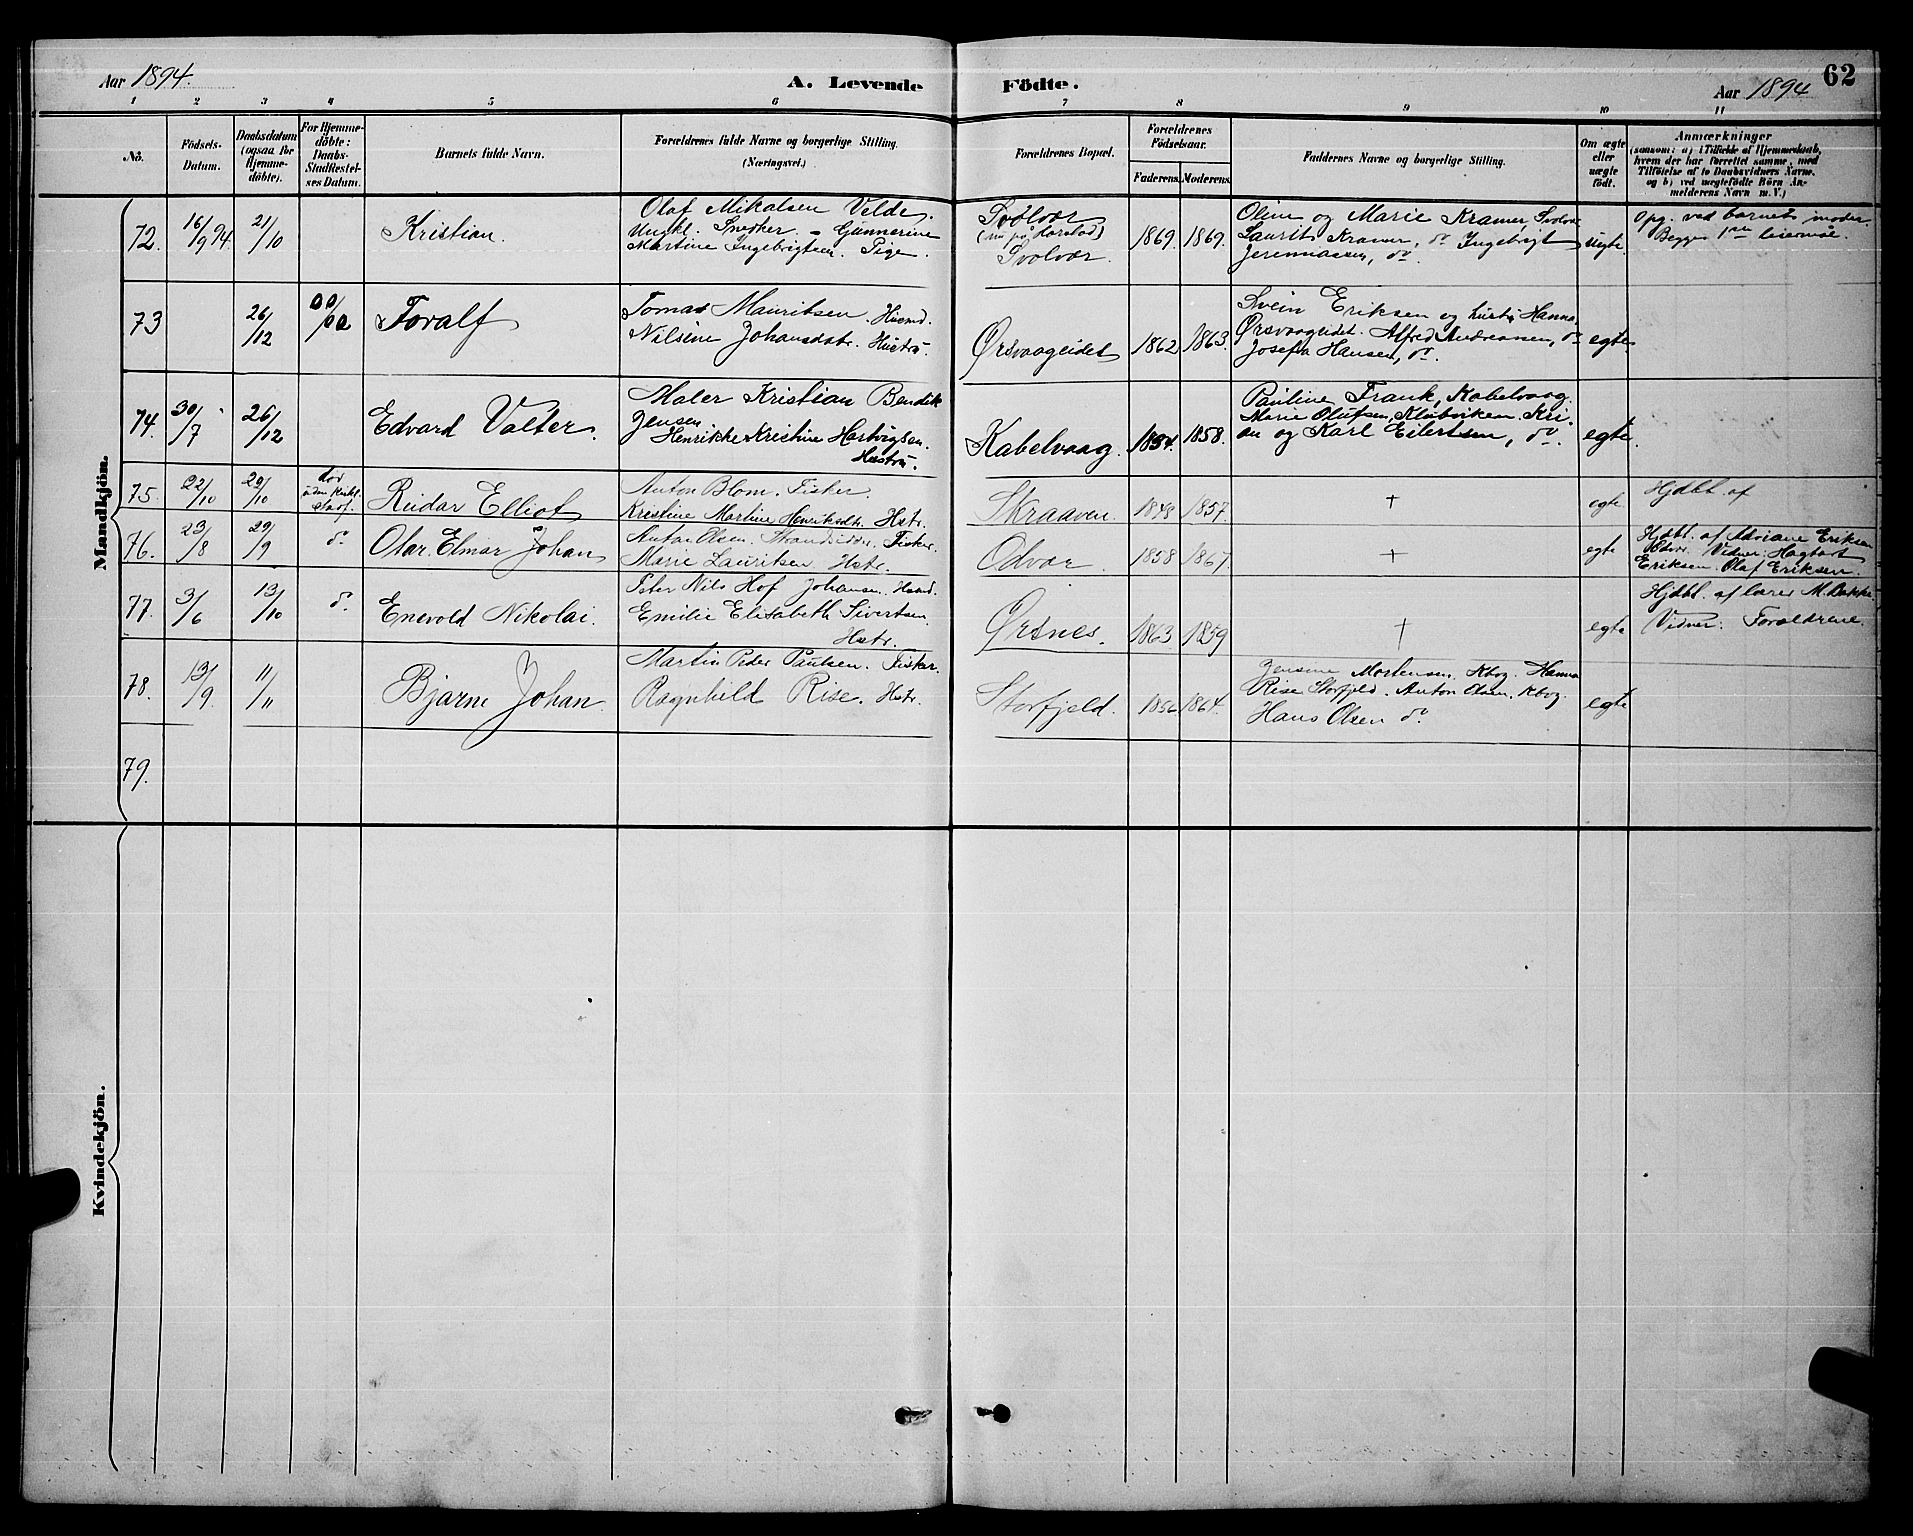 Aar 1894.
A. Levende
Födte.
Aar 1894
62
1 2 3 4 5 6 7 8 9 10 11
No.
Födsels-
Datum.
Daabsdatum
(ogsaa for
Hjemme-
döbte).
For Hjemme-
döbte:
Daabs-
Stadfæstel-
ses Datum.
Barnets fulde Navn.
Forældrenes fulde Navne og borgerlige Stilling.
(Næringsvei.)
Forældrenes Bopæl.
Forældrenes
Födselsaar.
Faderens. Moderens.
Faddernes Navne og borgerlige Stilling.
Om ægte
eller
uægte
födt.
Anmærkninger
(saasom: a) i Tilfælde af Hjemmedaab,
hvem der har forrettet samme, med
Tilföielse af to Daabsvidners Navne,
og b) ved uægtefödte Börn An-
melderens Navn m. V.)
Mandkjön.
72. 16/9 94. 21/10 Kristian.
Olaf Mikalsen Velde.
Ungkl. Snedker. – Gunnerine
Martine Ingebrigtsen. Pige.
Svolvær
(nu på Harstad)
Svolvær.
1869. 1869.
Oline og Marie Kramer, Svolvær
Laurits Kramer, do Ingebrigt
Jeremiassen, do.
uegte.
Opg. ved barnets moder.
Begges 1ste leiermål.
73 26/12 00/00 Toralf
Tomas Mauritsen. Husmd.
Nilsine Johansdtr. Hustru.
Ørsvaageidet 1862 1863.
Svein Eriksen og hustru Hanna,
Ørsvaageidet. Alfred Andreasen, do
Josefa Hansen, do.
egte
74. 30/7 26/12 Edvard Valter.
Maler Kristian Bendik
Jensen
Henrikke Kristine Hartvigsen.
Hustru.
Kabelvaag. 1854. 1858.
Pauline Frank, Kabelvaag.
Marie Olufsen, Klubviken.
og Karl Eilertsen, do.
egte.
75. 22/10 29/10
Reidar Elliot
Anton Blom. Fisker.
Kristine Martine Henriksdtr. Hstr.
Skraaven. 1848 1857. † egte
Hjdbt. af
76. 23/8 29/9 do. Olav Elmar Johan
Anton Olsen. Strandsidder. Fisker.
Marie Lauritsen Hstr.
Odvær. 1858 1867. † egte
Hjdbt. af Adriane Eriksen
Odvr. Vidner: Hagbart
Eriksen. Olaf Eriksen.
77. 3/6 13/10 do. Enevold Nikolai.
Peter Nils Hof Johansen. Husmd.
Emilie Elisabeth Sivertsen.
Hstr.
Ørsnes. 1863 1859 † egte
Hjdbt. af lærer M. Bakke.
Vidner: Forældrene.
78. 13/9 11/11 Bjarne Johan.
Martin Peder Paulsen. Fisker.
Ragnhild Rise. Hstr.
Storfjeld. 1856 1864.
Jensine Mortensen. Kbvg. Hanna
Rise Storfjeld. Anton Olsen. Kbvg.
Hans Olsen do
egte
79.
Kvindekjön.